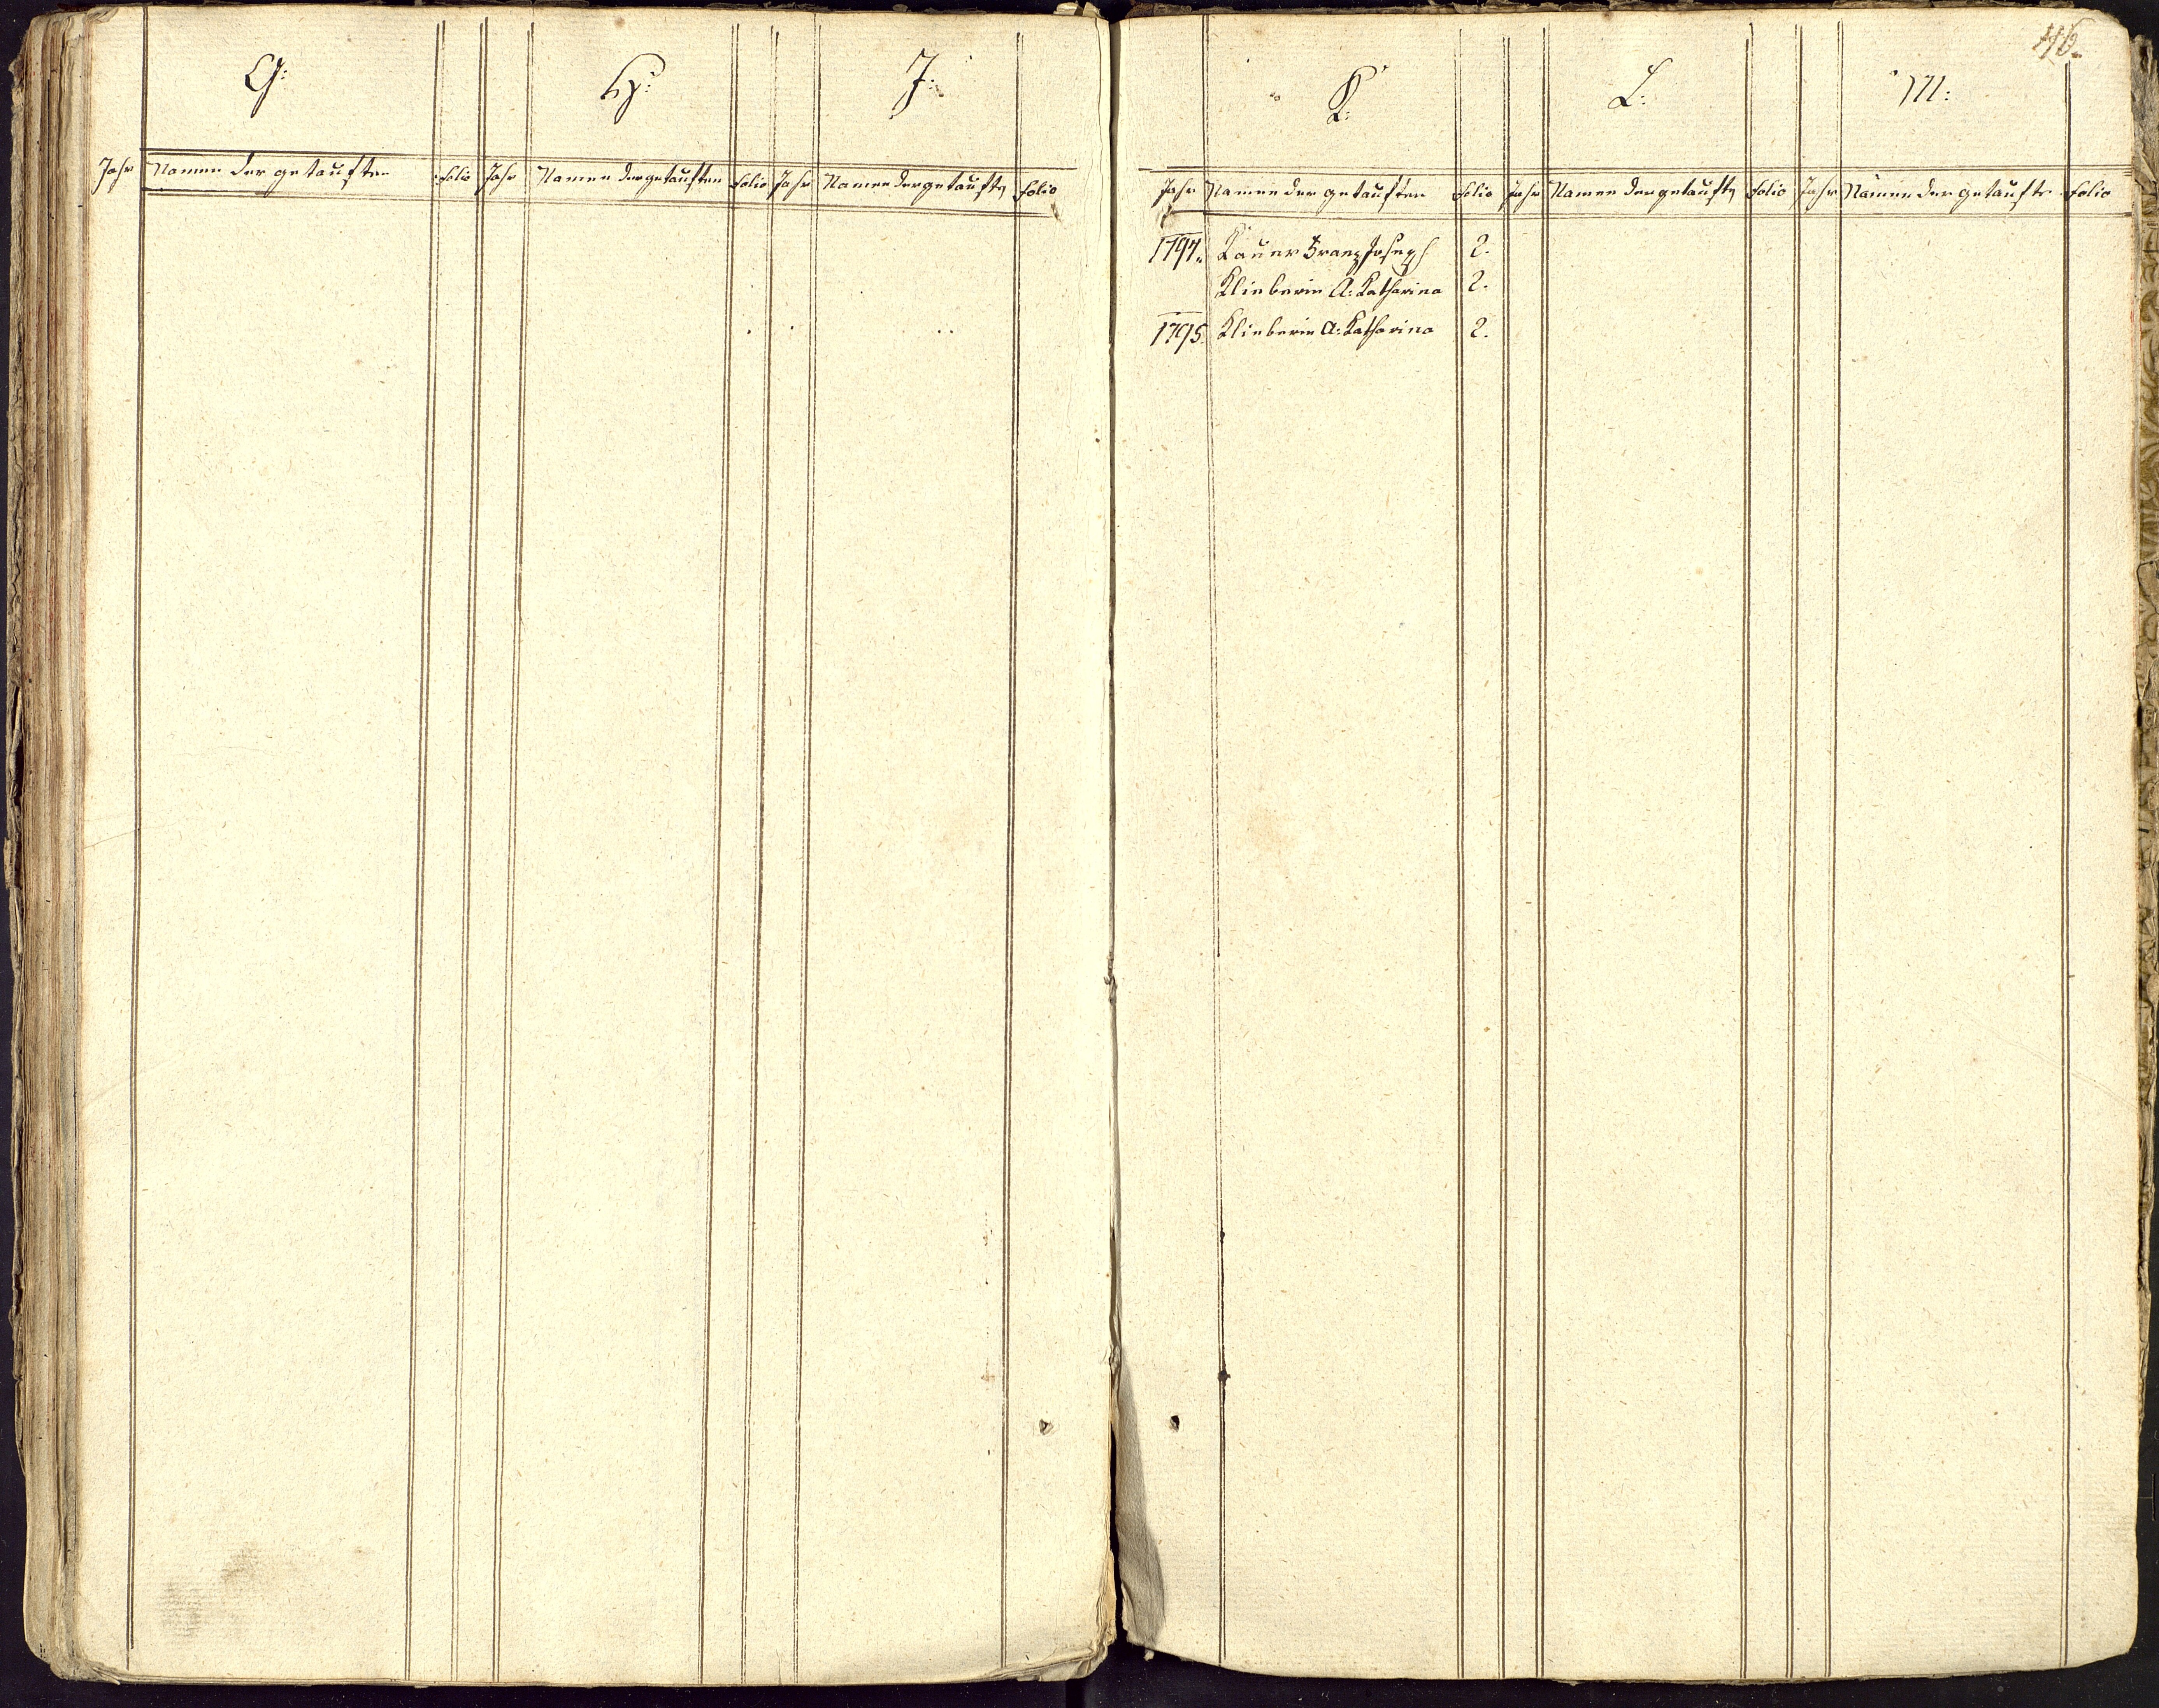 G:
H:
J:
Jahr Namen der getauften folio Jahr Namen der getauften folio Jahr Namen der getauften folio
K:
L:
M:
Jahr Namen der getauften folio Jahr Namen der getauften folio Jahr Namen der getaufte folio
1794. Kauer Franz Joseph 2.
Klieberin A: Katharina 2.
1795. Klieberin A: Katharina 2.